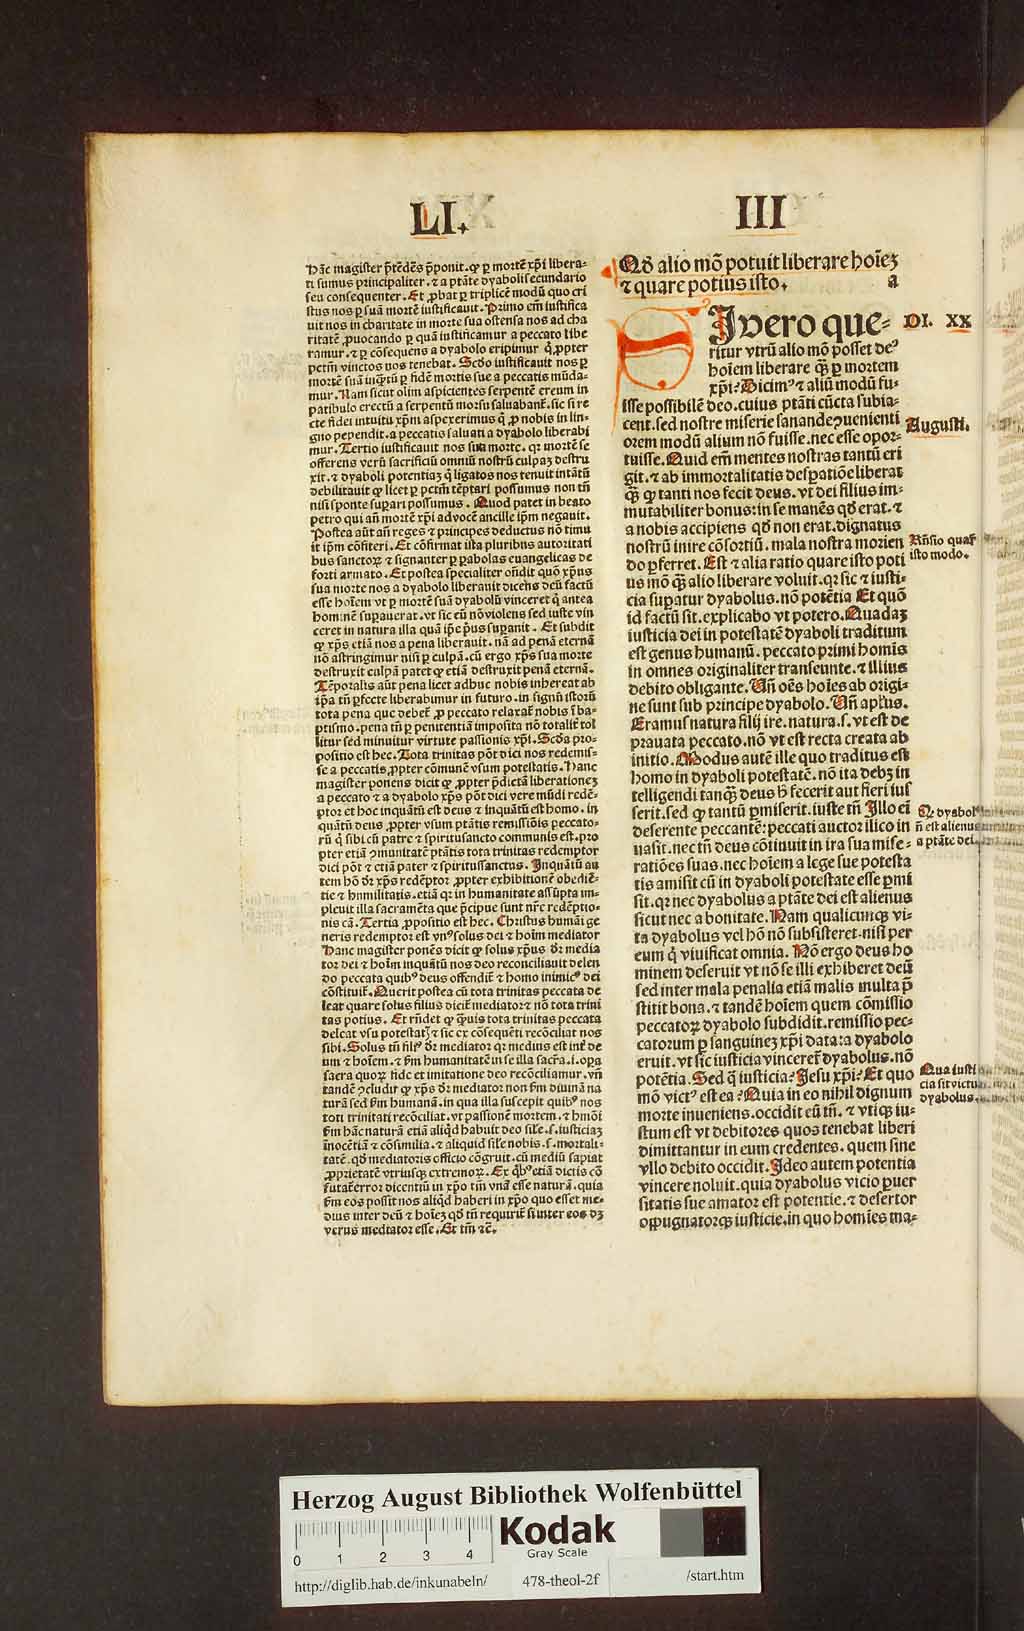 LI.
III
hāc magister p̄tēdēs p̄ponit. qꝫ ꝑ mortē xp̄i libera-
ti sumus principaliter. ⁊ a ptāte dyaboli secundario
seu consequenter. Et ꝓbat ꝑ triplicē modū quo cri
stus nos ꝑ suā mortē iustificauit. Primo em̄ iustifica
uit nos in charitate in morte sua ostensa nos ad cha
ritatē ꝓuocando ꝑ quā iustificamur a peccato libe
ramur. ⁊ ꝑ cōsequens a dyabolo eripimur q̄ ꝓpter
pctm̄ vinctos nos tenebat. Scdo iustificauit nos ꝑ
mortē suā inqꝫtū ꝑ fidē mortis sue a peccatis mūda-
mur. Nam sicut olim aspicientes serpentē ereum in
patibulo erectū a serpentū morsu saluabanť. sic si re
cte fidei intuitu xp̄m aspexerimus q̄ ꝓ nobis in lin-
gno pependit. a peccatis saluati a dyabolo liberabi
mur. Tertio iustificauit nos sua morte. qꝛ mortē se
offerens verū sacrificiū omniū nostrū culpaꝫ destru
xit. ⁊ dyaboli potentiaꝫ q̄ ligatos nos tenuit intātū
debilitauit qꝫ licet ꝑ pctm̄ tēptari possumus non tn̄
nisi sponte suꝑari possumus. Quod patet in beato
petro qui an̄ mortē xp̄i ad vocē ancille ip̄m negauit.
Postea aūt an̄ reges ⁊ principes deductus nō timu
it ip̄m cōfiteri. Et cōfirmat ista pluribus autoritati
bus sanctoꝝ ⁊ signanter ꝑ parabolas euangelicas de
forti armato. Et postea specialiter on̄dit quō xp̄us
sua morte nos a dyabolo liberauit dicens deū factū
esse hoīem vt ꝑ mortē suā dyabolū vinceret q̄ antea
hominē suꝑauerat. vt sic eū nō violens sed iuste vin
ceret in natura illa quā ip̄e p̄us suꝑauit. Et subdit
qꝫ xp̄s etiā nos a pena liberauit. nā ad penā eternā
nō astringimur nisi ꝑ culpā. cū ergo xp̄s sua morte
destruxit culpā patet qꝫ etiā destruxit penā eternā.
Tēporalis aūt pena licet adhuc nobis inhereat ab
ip̄a tn̄ ꝑfecte liberabimur in futuro. in signū istorū
tota pena que debeť ꝓ peccato relaxať nobis ī ba-
ptismo. pena tn̄ ꝑ penitentiā imposita nō totaliť tol
litur sed minuitur virtute passionis xp̄i. Scda pro-
positio est hec. Tota trinitas pōt dici nos redemis-
se a peccatis ꝓpter cōmunē vsum potestatis. Hanc
magister ponens dicit qꝫ ꝓpter p̄dictā liberationeꝫ
a peccato ⁊ a dyabolo xp̄s pōt dici vere mūdi redē-
ptor et hoc inquātū est deus ⁊ inquātū est homo. in
quātū deus ꝓpter vsum ptātis remissiōis peccato-
rū q̄ sibi cū patre ⁊ spiritusancto communis est. pro
pter etiā ꝯmunitatē ptātis tota trinitas redemptor
dici pōt ⁊ etiā pater ⁊ spiritussanctus. Inquātū au
tem hō dꝛ xp̄s redēptor ꝓpter exhibitionē obediē-
tie ⁊ humilitatis. etiā qꝛ in humanitate assūpta im-
pleuit illa sacramēta que p̄cipue sunt nr̄e redēptio-
nis cā. Tertia ꝓpositio est hec. Christus humāi ge
neris redemptor est vnꝰ solus dei ⁊ hoīm mediator
Hanc magister ponēs dicit qꝫ solus xp̄us dꝛ media
tor dei ⁊ hoīm inquātū nos deo reconciliauit delen
do peccata quibꝰ deus offendiť ⁊ homo inimicꝰ dei
cōstituiť. Querit postea cū tota trinitas peccata de
leat quare solus filius diciť mediator ⁊ nō tota trini
tas potius. Et rn̄det qꝫ q̄uis tota trinitas peccata
deleat vsu potestatꝭ ⁊ sic ex cōsequēti recōciliat nos
sibi. Solus tn̄ filiꝰ dꝛ mediator qꝛ medius est inť de
um ⁊ hoīem. ⁊ ẜm humanitatē in se illa sacr̄a. i. oꝑa
sacra quoꝝ fide et imitatione deo recōciliamur. vn̄
tandē ꝯcludiť qꝫ xp̄s dꝛ mediator non ẜm diuinā na
turā sed ẜm humanā. in qua illa suscepit quibꝰ nos
toti trinitati recōciliat. vt passionē mortem. ⁊ hmōi
ẜm hāc naturā etiā aliqd̄ habuit deo sil̄e. s. iusticiaꝫ
īnocētiā ⁊ cōsimilia. ⁊ aliquid sil̄e nobis. s. mortali-
tatē. qd̄ mediatoris officio cōgruit. cū mediū sapiat
ꝓprietatē vtriusqꝫ extremoꝝ. Ex q̄bꝰ etiā dictis cō
futať error dicentiū in xp̄o tm̄ vnā esse naturā. quia
ẜm eos possit nos aliqd̄ haberi in xp̄o quo esset me-
dius inter deū ⁊ hoīeꝫ qd̄ tn̄ requiriť si inter eos dꝫ
verus mediator esse. Et tm̄ ⁊c̄.
Qd̄ alio mō potuit liberare hoīeꝫ
⁊ quare potius isto. a
SI vero que-
ritur vtrū alio mō posset deꝰ
hoīem liberare q̄ꝫ ꝑ mortem
xp̄i? Dicimꝰ ⁊ aliū modū fu-
isse possibilē deo. cuius ptāti cūcta subia-
cent. sed nostre miserie sanande ꝯuenienti
orem modū alium nō fuisse. nec esse opor-
tuisse. Quid em̄ mentes nostras tantū eri
git. ⁊ ab immortalitatis desꝑatiōe liberat
q̄ꝫ qꝫ tanti nos fecit deus. vt dei filius im-
mutabiliter bonus: in se manēs qd̄ erat. ⁊
a nobis accipiens qd̄ non erat. dignatus
nostrū inire cōsortiū. mala nostra morien
do ꝑferret. Est ⁊ alia ratio quare isto poti
us mō q̄ꝫ alio liberare voluit. qꝛ sic ⁊ iusti-
cia suꝑatur dyabolus. nō potētia Et quō
id factū sit. explicabo vt potero. Quadaꝫ
iusticia dei in potestatē dyaboli traditum
est genus humanū. peccato primi homis
in omnes originaliter transeunte. ⁊ illius
debito obligante. Un̄ oēs hoīes ab origi-
ne sunt sub principe dyabolo. Un̄ apl̄us.
Eramus natura filij ire. natura. s. vt est de
prauata peccato. nō vt est recta creata ab
initio. Modus autē ille quo traditus est
homo in dyaboli potestatē. nō ita debꝫ in
telligendi tanqꝫ deus h̄ fecerit aut fieri ius
serit. sed qꝫ tantū ꝑmiserit. iuste tn̄ Illo ei
deserente peccantē: peccati auctor ilico in
uasit. nec tn̄ deus cōtinuit in ira sua mise-
ratiōes suas. nec hoīem a lege sue potesta
tis amisit cū in dyaboli potestate esse ꝑmi
sit. qꝛ nec dyabolus a ptāte dei est alienus
sicut nec a bonitate. Nam qualicunqꝫ vi-
ta dyabolus vel hō nō subsisteret. nisi per
eum q̄ viuificat omnia. Nō ergo deus ho
minem deseruit vt nō se illi exhiberet deū
sed inter mala penalia etiā malis multa p̄
stitit bona. ⁊ tandē hoīem quem cōmissio
peccatoꝝ dyabolo subdidit. remissio pec-
catorum ꝑ sanguineꝫ xp̄i data: a dyabolo
eruit. vt sic iusticia vinceret̄ dyabolus. nō
potētia. Sed q̄ iusticia? Jesu xp̄i? Et quo
mō victꝰ est ea? Quia in eo nihil dignum
morte inueniens. occidit eū tn̄. ⁊ vtiqꝫ iu-
stum est vt debitores quos tenebat liberi
dimittantur in eum credentes. quem sine
vllo debito occidit. Ideo autem potentia
vincere noluit. quia dyabolus vicio ꝑuer
sitatis sue amator est potentie. ⁊ desertor
oppugnatorqꝫ iusticie. in quo homīes ma-
DI. XX
Augusti.
Rn̄sio quař
isto modo.
Qꝛ dyabolꝰ
n̄ est alienus
a ptāte dei
Qua iusti
cia sit victꝰ
dyabolus.
Herzog August Bibliothek Wolfenbüttel
0 1 2 3 4
Kodak
Gray Scale
http://diglib.hab.de/inkunabeln/
478-theol-2f
/start.htm